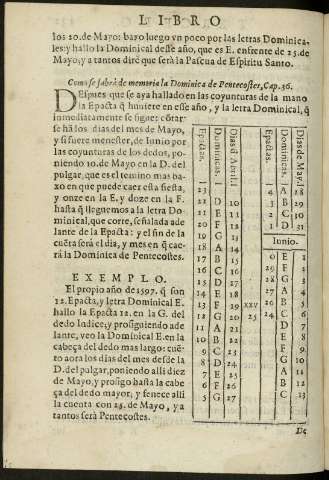 LIBRO
los 10. de Mayo: baxo luego vn poco por las letras Dominica-
les: y hallo la Dominical desse año, que es E. enfrente de 25. de
Mayo, y a tantos diré que será la Pascua de Espiritu Santo.
Como se sabrà de memoria la Dominica de Pentecostes, Cap. 36.
DEspues que se aya hallado en las coyunturas de la mano
la Epacta q̃ huuiere en esse año, y la letra Dominical, q̃
inmediatamente se sigue: cõtar-
se hã los dias del mes de Mayo,
y si fuere menester, de Iunio por
las coyunturas de los dedos, po-
niendo 10. de Mayo en la D. del
pulgar, que es el termino mas ba-
xo en que puede caer esta fiesta,
y onze en la E, y doze en la F.
hasta q̃ lleguemos a la letra Do-
minical, que corre, señalada ade
lante de la Epacta: y el fin de la
cuẽta será el dia, y mes en q̃ cae-
rá la Dominica de Pentecostes.
EXEMPLO.
El propio año de 1597. q̃ son
12. Epacta, y letra Dominical E.
hallo la Epacta 12. en la G. del
dedo Indice: y prosiguiendo ade
lante, veo la Dominical E. en la
cabeça del dedo mas largo: cuẽ-
to aora los dias del mes desde la
D. del pulgar, poniendo alli diez
de Mayo, y prosigo hasta la cabe
ça del dedo mayor, y fenece alli
la cuenta con 25. de Mayo, y a
tantos será Pentecostes.
Epactas.
Dominicas.
Dias d̃ Abril.
Epactas.
Dominicas.
Dias de Mayo.
23
22 D 10
21 E 11
20 F 12
19 G 13
18 A 14
17 B 15
16 C 16
15 D 17
14 E 18
13 F 19 XXV
12 G 20 25
11 A 21
10 B 22
9 C 23
8 D 24
7 E 25
6 F 26
5 G 27
4 A 28
3 B 29
2 C 30
1 D 31
Iunio.
0 E 1
29 F 2
28 G 3
27 A 4
26 B 5
24 C 6
D 7
E 8
F 9
G 10
A 11
B 12
C 13